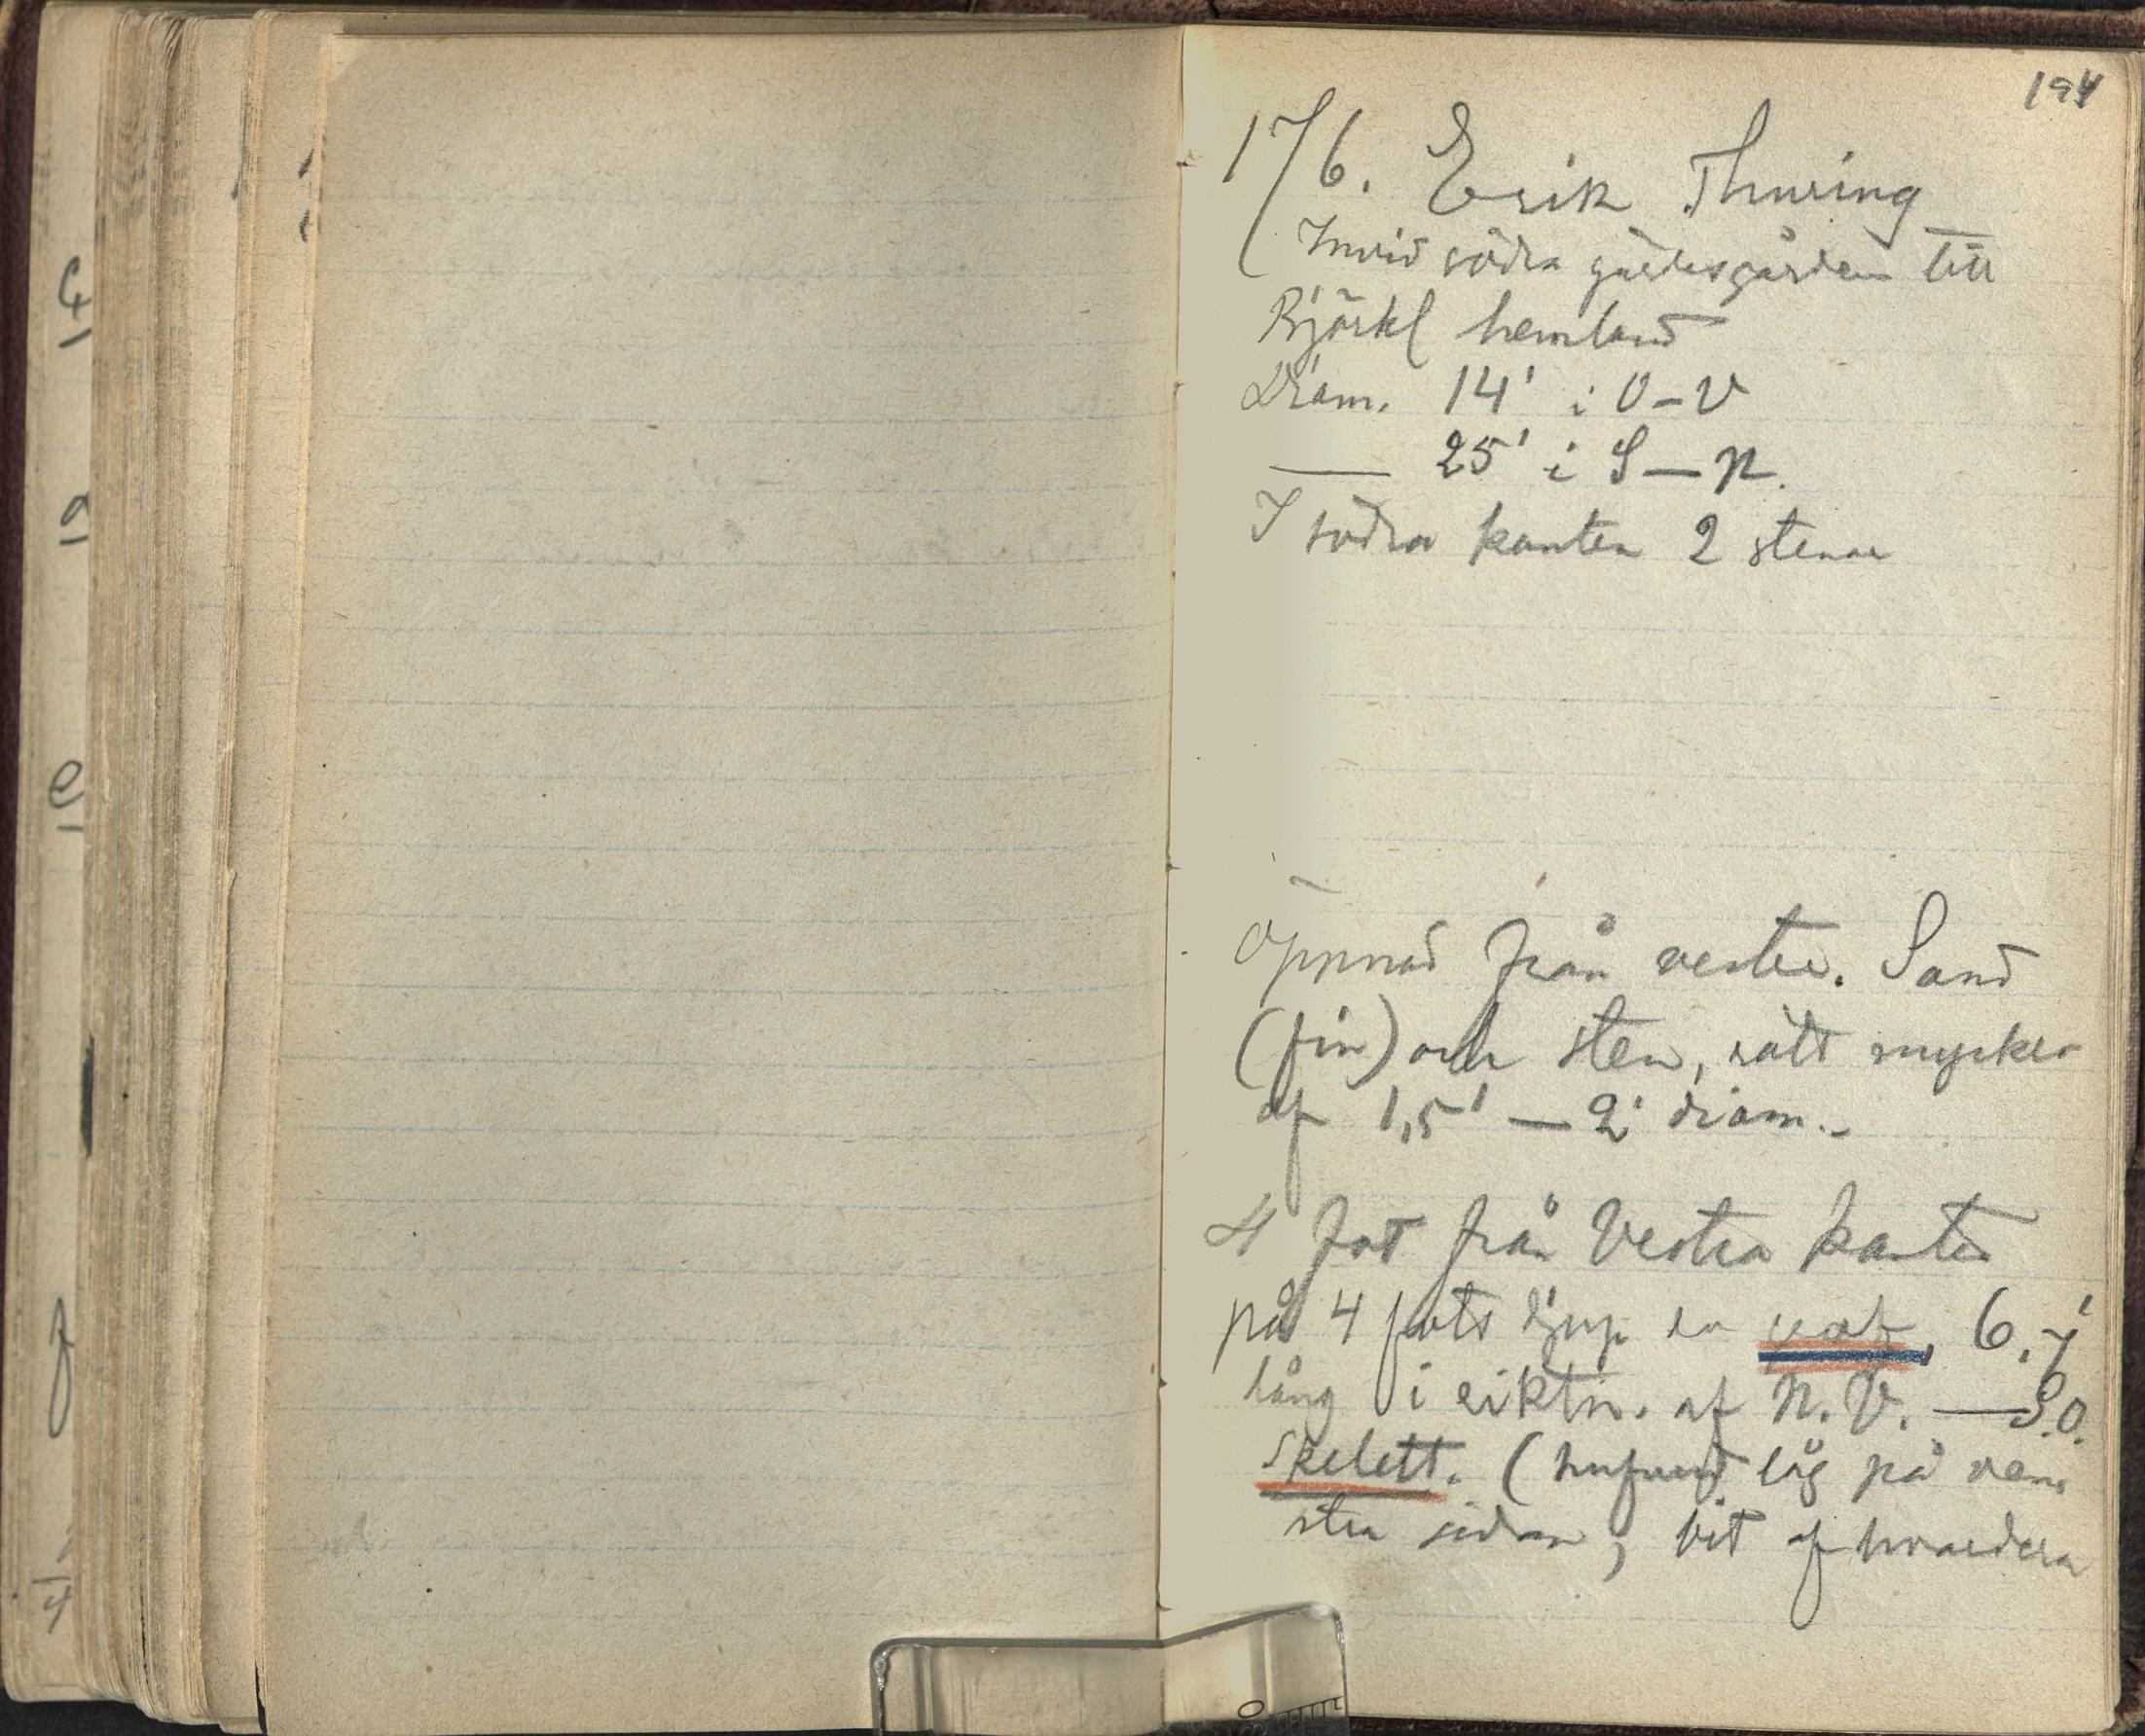 194
176. Erik Thuring
Invid södra gärdesgården till
Björkl hemland
Diam. 14' i O–V
— 25' i S–N.
I södra kanten 2 stenar
Öppnad från vester. Sand
(fin) och sten, rätt mycken
af 1,5' — 2' diam.–
4 fot från Vestra kanten
på 4 fots djup en graf, 6.7'
lång i riktn. af N.V. — S.O.
Skelett. (hufvud låg på ven
stra sidan, bit af hvardera